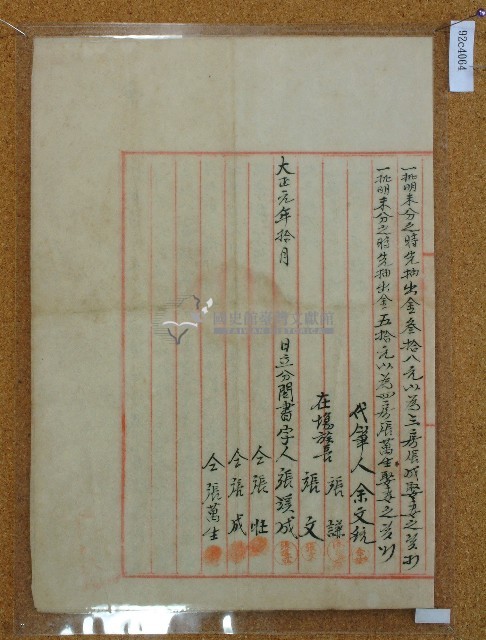 一批明未分之時先抽出金叁拾八元以為三房張成娶妻之資批
一批明未分之時先抽出金五拾元以為四房張萬生娶妻之資批
代筆人余文
在場族長 張謙
張文
大正元年拾月 日立分鬮書字人張漢成
仝張旺
仝張成
仝張萬生
國史館臺灣文獻館
TAIWAN HISTORICA
92c4064